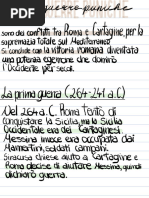 guerre puniche
sono dei conflitti tra Roma e Cartagine, per la
supremazia totale sul Mediterraneo
Si conclude con la vittoria romana diventata
una potenza egemone che dominò
l'Occidente per secoli.
La prima guerra (264-241 a.C)
Del 264 a.C. Roma tentò di
conquistare la Sicilia, ma la Sicilia
Occidentale era dei Cartaginesi.
Messina invece era occupata dai
Mamertini, soldati campani.
Siracusa chiese aiuto a Cartagine e
Roma decise di aiutare Messina, quindi
chiese